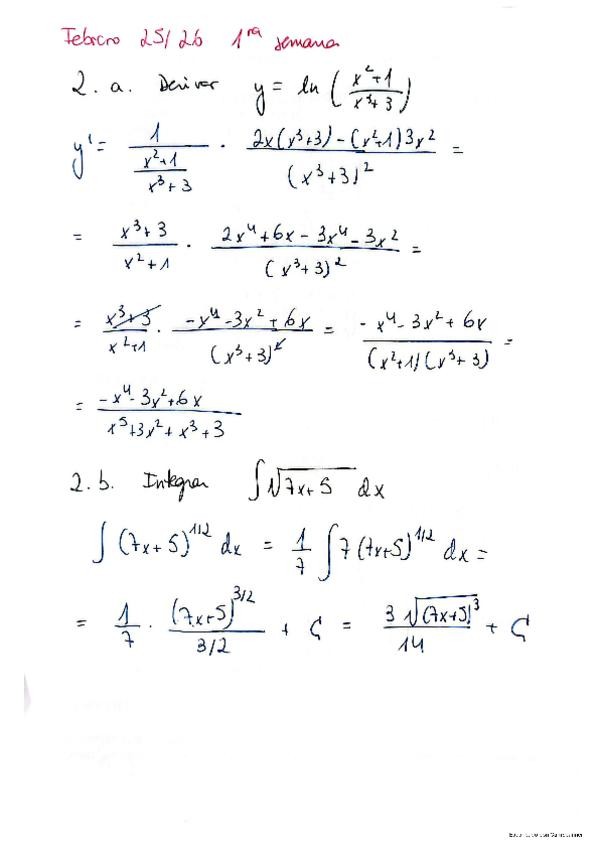 Febrero 25/26 1ra semana
2. a. Derivar y = ln ( (x²+1)/(x³+3) )
y' = 1/((x²+1)/(x³+3)) · (2x(x³+3) - (x²+1)3x²)/(x³+3)² =
= (x³+3)/(x²+1) · (2x⁴+6x-3x⁴-3x²)/(x³+3)² =
= (x³+3)/(x²+1) · (-x⁴-3x²+6x)/(x³+3)² = (-x⁴-3x²+6x)/((x²+1)(x³+3)) =
= (-x⁴-3x²+6x)/(x⁵+3x²+x³+3)
2. b. Integrar ∫√(7x+5) dx
∫(7x+5)^(1/2) dx = 1/7 ∫7(7x+5)^(1/2) dx =
= 1/7 · (7x+5)^(3/2)/(3/2) + C = 3√(7x+5)³/14 + C